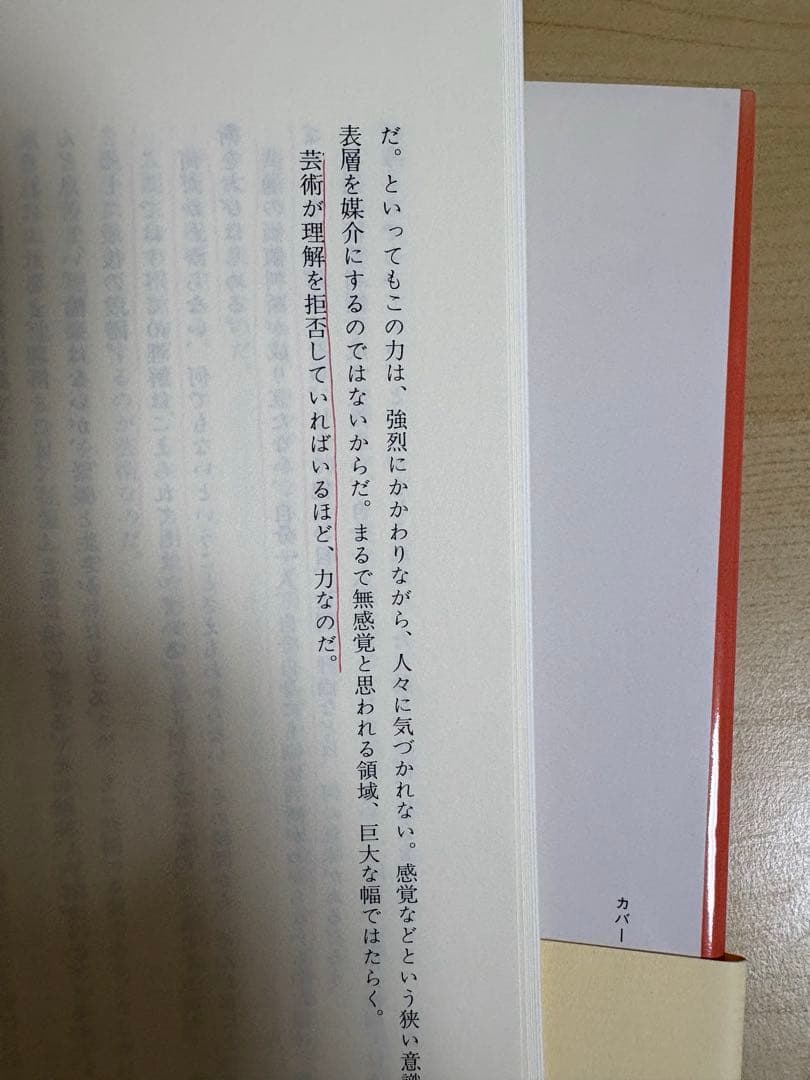 だ。といってもこの力は、強烈にかかわりながら、人々に気づかれない。感覚などという狭い意識
表層を媒介にするのではないからだ。まるで無感覚と思われる領域、巨大な幅ではたらく。
芸術が理解を拒否していればいるほど、力なのだ。
カバー